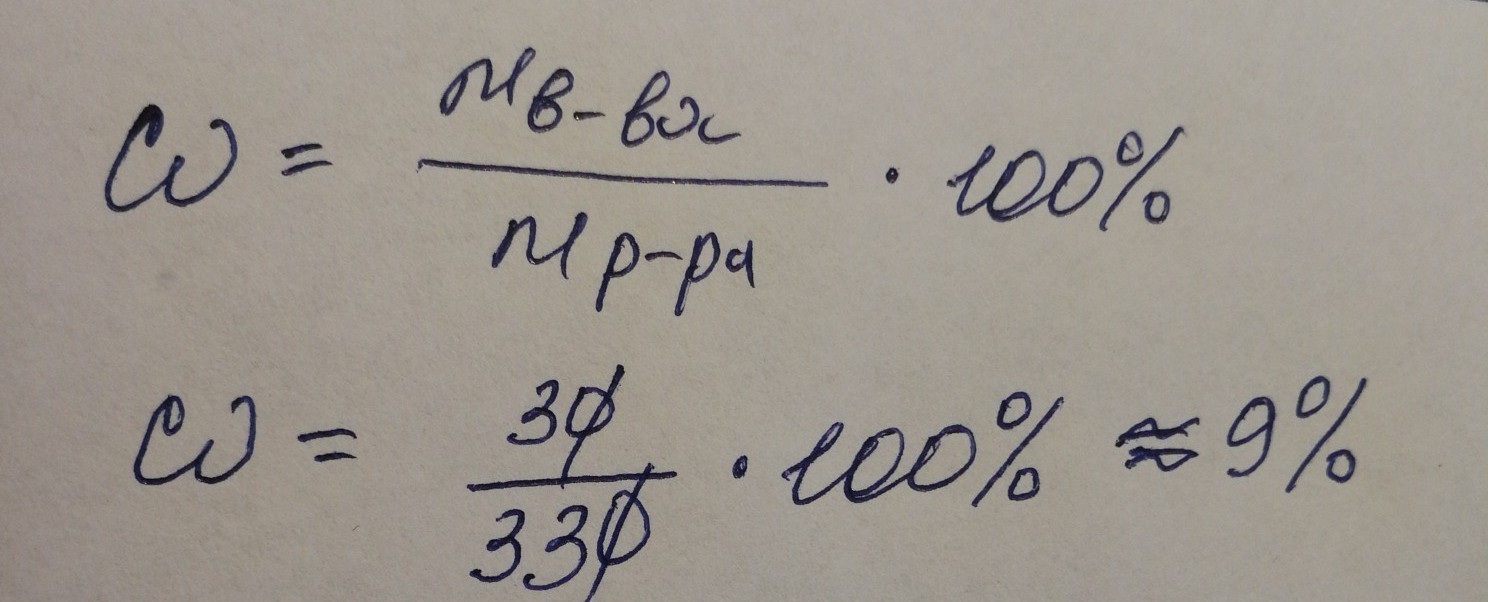 ω = mв-вос / mр-ра · 100%
ω = 30 / 330 · 100% ≈ 9%